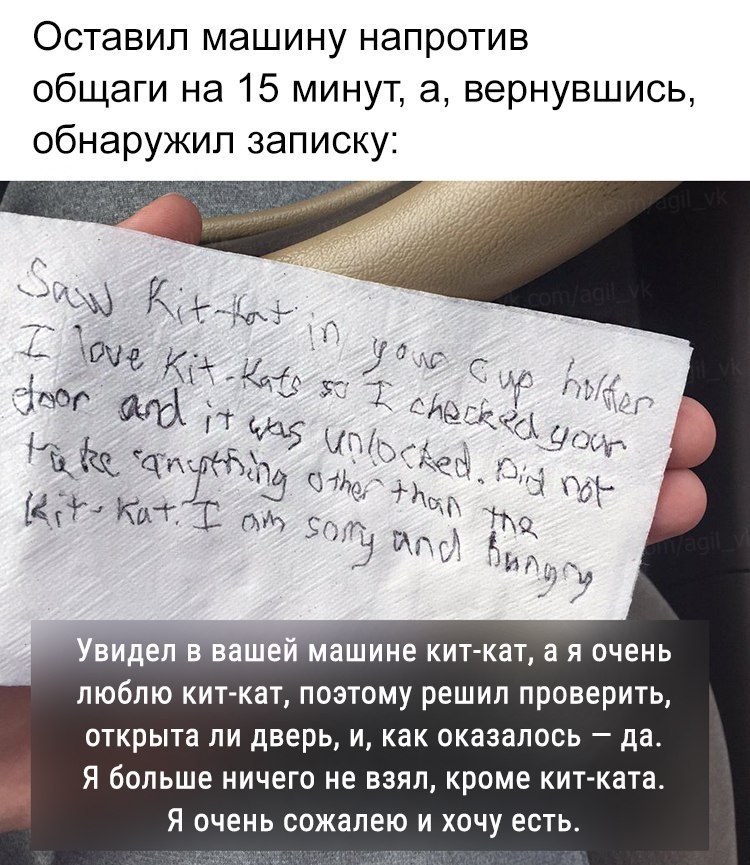 Оставил машину напротив
общаги на 15 минут, а, вернувшись,
обнаружил записку:
.com/agil_vk
.com/agil_vk
Saw Kit-Kat in your cup holder
I love Kit-Kats so I checked your
door and it was unlocked. Did not
take anything other than the
Kit-Kat. I am sorry and hungry
Увидел в вашей машине кит-кат, а я очень
люблю кит-кат, поэтому решил проверить,
открыта ли дверь, и, как оказалось — да.
Я больше ничего не взял, кроме кит-ката.
Я очень сожалею и хочу есть.